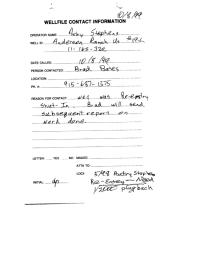 10/8/99
WELLFILE CONTACT INFORMATION
OPERATOR NAME: Autry Stephens
WELL ID: Andersen Ranch Us #19-1
11-165-320
DATE CALLED: 10/8/99
PERSON CONTACTED: Brad Bates
LOCATION:
PH. #: 915-687-1575
REASON FOR CONTACT: well was Re-entry
Shut-In. Brad will send
subsequent report on
work done.
LETTER: YES NO MAILED:
ATTN TO:
LOCI: 5/98 Autry Stephens
INITIAL: dp Re-Entry - Need
plugback